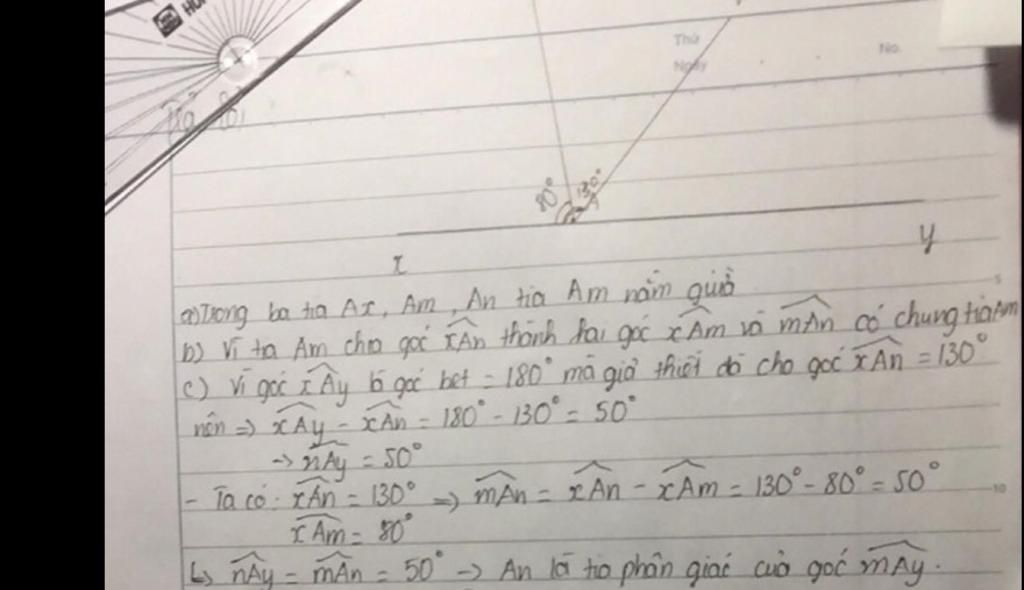 Thứ
No.
Ngày
80°
130°
x
y
a) Trong ba tia Ax, Am, An tia Am nằm giữa
b) Vì tia Am chia góc xAn thành hai góc xAm và mAn có chung tia Am
5
c) Vì góc xAy là góc bẹt = 180° mà giả thiết đã cho góc xAn = 130°
nên => xAy - xAn = 180° - 130° = 50°
-> nAy = 50°
- Ta có: xAn = 130° => mAn = xAn - xAm = 130° - 80° = 50°
10
xAm = 80°
↳ nAy = mAn = 50° -> An là tia phân giác của góc mAy.